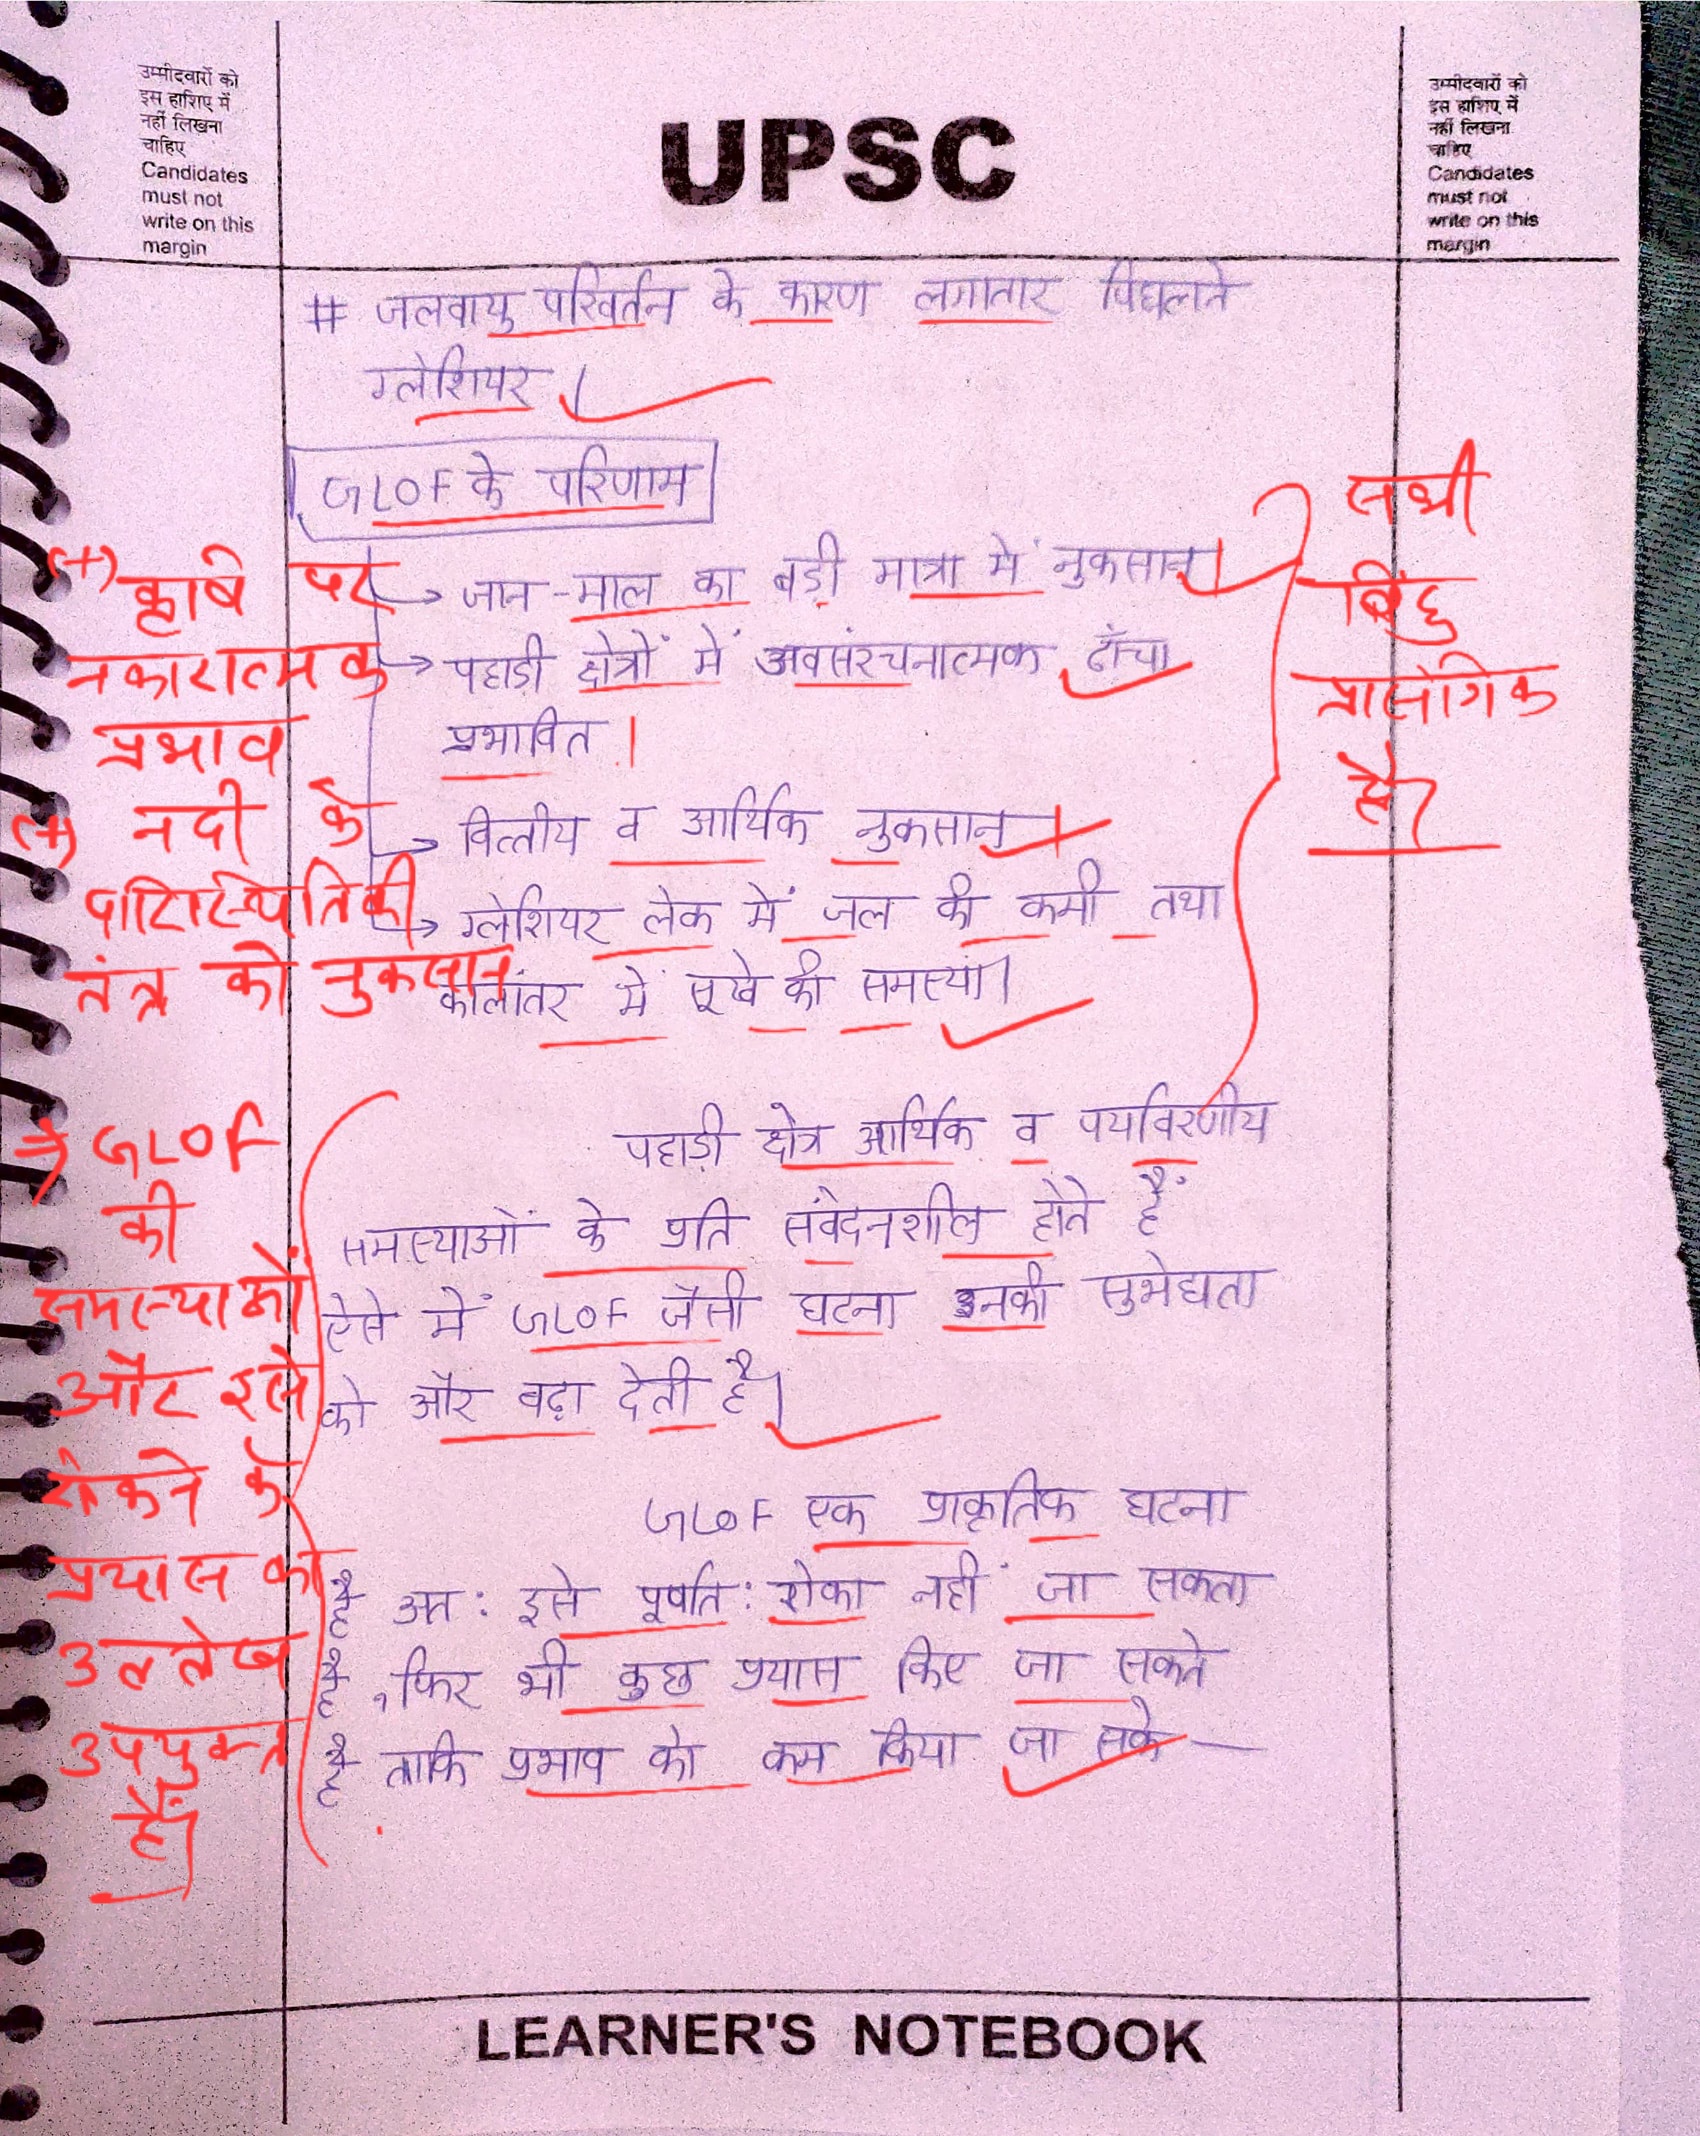 उम्मीदवारों को
इस हाशिए में
नहीं लिखना
चाहिए
Candidates
must not
write on this
margin
UPSC
उम्मीदवारों को
इस हाशिए में
नहीं लिखना
चाहिए
Candidates
must not
write on this
margin
# जलवायु परिवर्तन के कारण लगातार पिघलते
ग्लेशियर।
GLOF के परिणाम
→ जान-माल का बड़ी मात्रा में नुकसान।
→ पहाडी क्षेत्रों में अवसंरचनात्मक ढाँचा
प्रभावित।
→ वित्तीय व आर्थिक नुकसान।
→ ग्लेशियर लेक में जल की कमी तथा
कालांतर में सूखे की समस्या।
सभी
बिंदु
प्रासंगिक
है।
(+) कृषि पर
नकारात्मक
प्रभाव
(+) नदी के
पारिस्थितिकी
तंत्र को नुकसान
पहाडी क्षेत्र आर्थिक व पर्यावरणीय
समस्याओं के प्रति संवेदनशील होते हैं
ऐसे में GLOF जैसी घटना उनकी सुभेद्यता
को और बढ़ा देती है।
GLOF एक प्राकृतिक घटना
है अतः इसे पूर्णतः रोका नहीं जा सकता
है, फिर भी कुछ प्रयास किए जा सकते
है ताकि प्रभाव को कम किया जा सके —
⇒ GLOF
की
समस्याओं
और इसे
रोकने के
प्रयास का
उल्लेख
उपयुक्त
है।
LEARNER'S NOTEBOOK